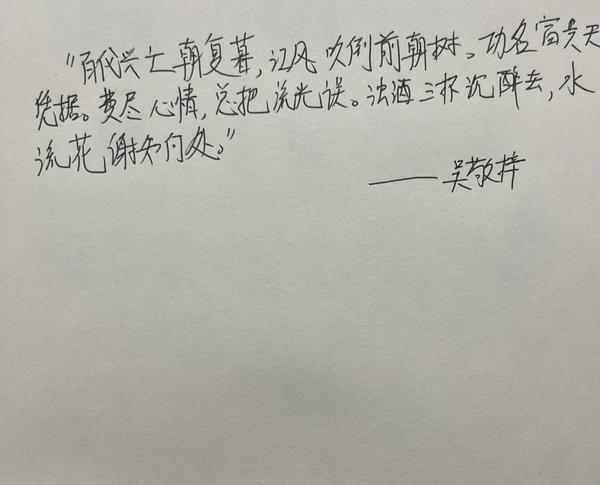 “百代兴亡朝复暮,江风吹倒前朝树。功名富贵无
凭据。费尽心情,总把流光误。浊酒三杯沉醉去,水
流花谢知何处。”
——吴敬梓